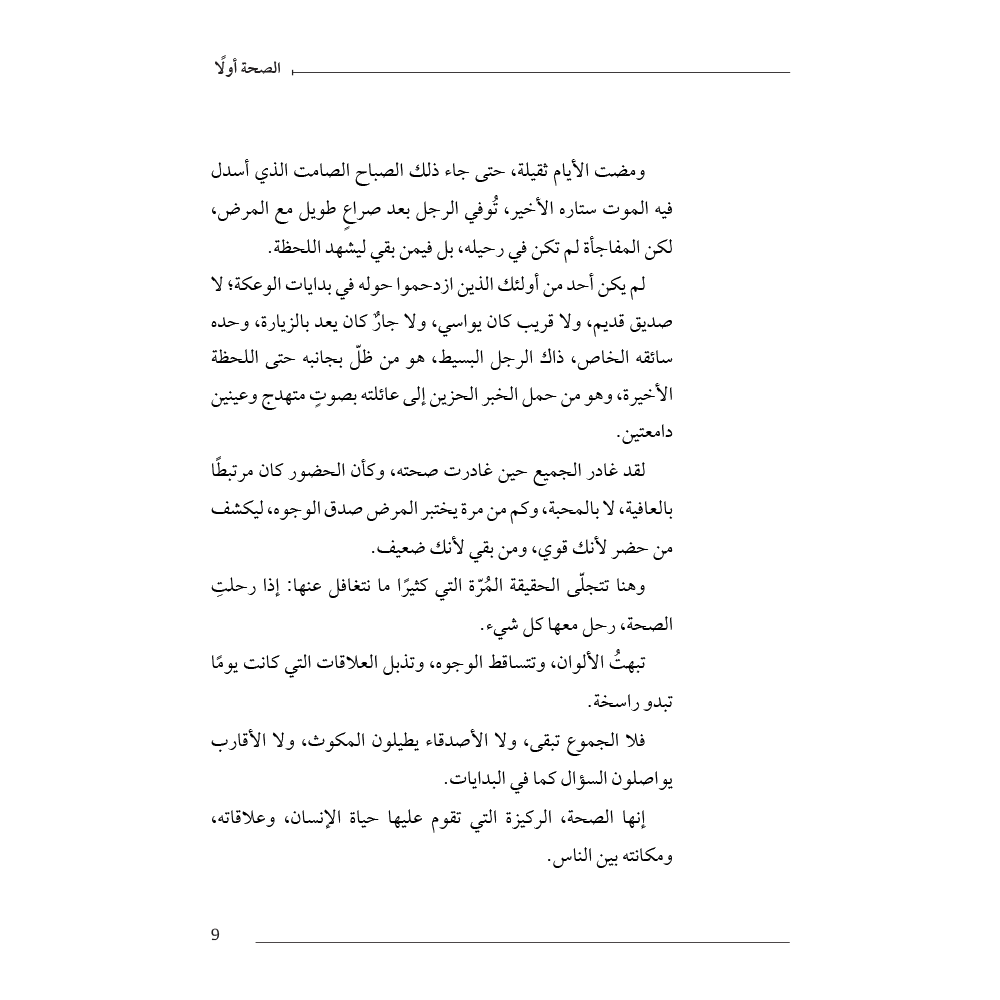 الصحة أولًا
ومضت الأيام ثقيلة، حتى جاء ذلك الصباح الصامت الذي أسدل
فيه الموت ستاره الأخير، تُوفي الرجل بعد صراعٍ طويل مع المرض،
لكن المفاجأة لم تكن في رحيله، بل فيمن بقي ليشهد اللحظة.
لم يكن أحد من أولئك الذين ازدحموا حوله في بدايات الوعكة؛ لا
صديق قديم، ولا قريب كان يواسي، ولا جارٌ كان يعد بالزيارة، وحده
سائقه الخاص، ذاك الرجل البسيط، هو من ظلّ بجانبه حتى اللحظة
الأخيرة، وهو من حمل الخبر الحزين إلى عائلته بصوتٍ متهدج وعينين
دامعتين.
لقد غادر الجميع حين غادرت صحته، وكأن الحضور كان مرتبطًا
بالعافية، لا بالمحبة، وكم من مرة يختبر المرض صدق الوجوه، ليكشف
من حضر لأنك قوي، ومن بقي لأنك ضعيف.
وهنا تتجلّى الحقيقة المُرّة التي كثيرًا ما نتغافل عنها: إذا رحلتِ
الصحة، رحل معها كل شيء.
تبهتُ الألوان، وتتساقط الوجوه، وتذبل العلاقات التي كانت يومًا
تبدو راسخة.
فلا الجموع تبقى، ولا الأصدقاء يطيلون المكوث، ولا الأقارب
يواصلون السؤال كما في البدايات.
إنها الصحة، الركيزة التي تقوم عليها حياة الإنسان، وعلاقاته،
ومكانته بين الناس.
9